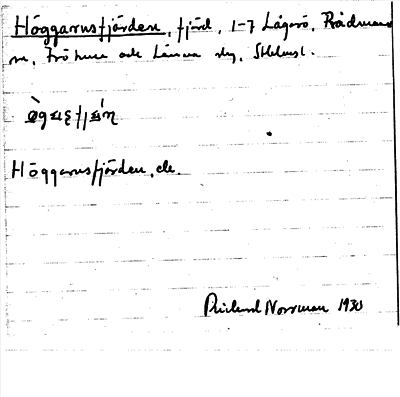 Höggarnsfjärden, fjärd, 1-7 Lågarö, Rådmansö
sn, Frötuna och Länna skg, Sthlmsl.
Höggarnsfjärden, ek.
Norrman 1930